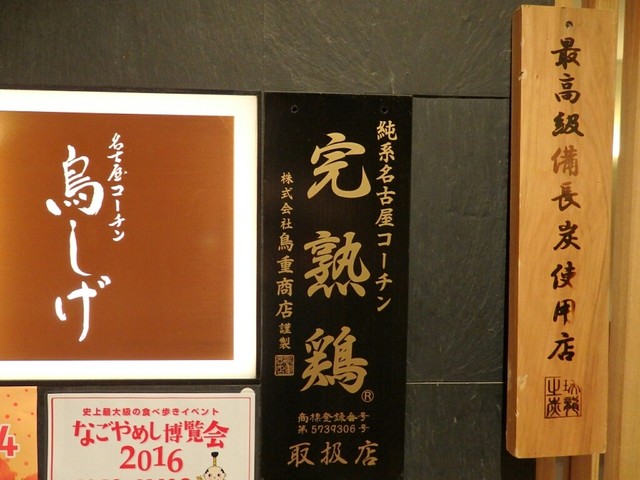 名古屋コーチン
鳥しげ
純系名古屋コーチン
完熟鶏®
株式会社鳥重商店謹製
商標登録番号
第5739306号
取扱店
最高級備長炭使用店
史上最大級の食べ歩きイベント
なごやめし博覧会
2016
4